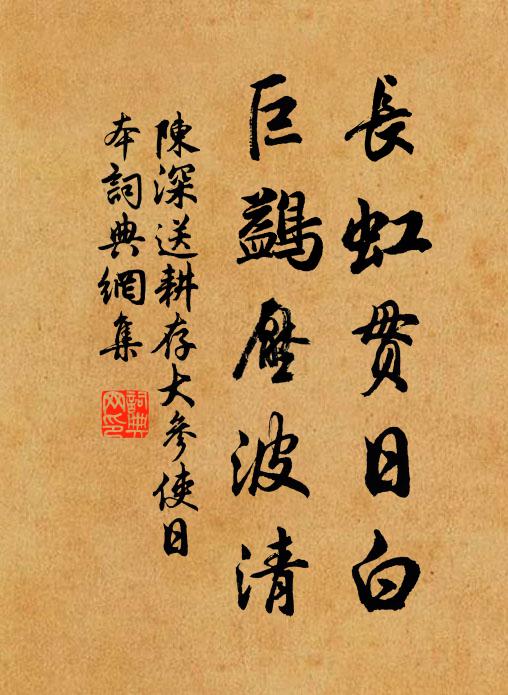 長虹贯日白
巨鷁壓波清
陳深送耕存大參使日
本詞典網集
詞典
网印